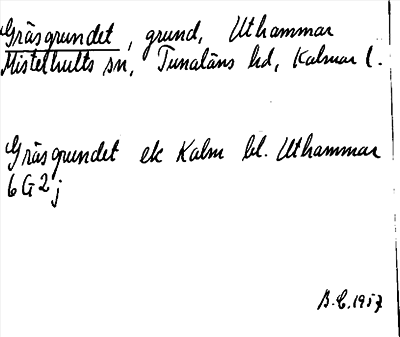 Gräsgrundet, grund, Uthammar
Misterhults sn, Tunaläns hd, Kalmar l.
Gräsgrundet ek Kalm bl. Uthammar
6 G 2 j
B.E. 1957